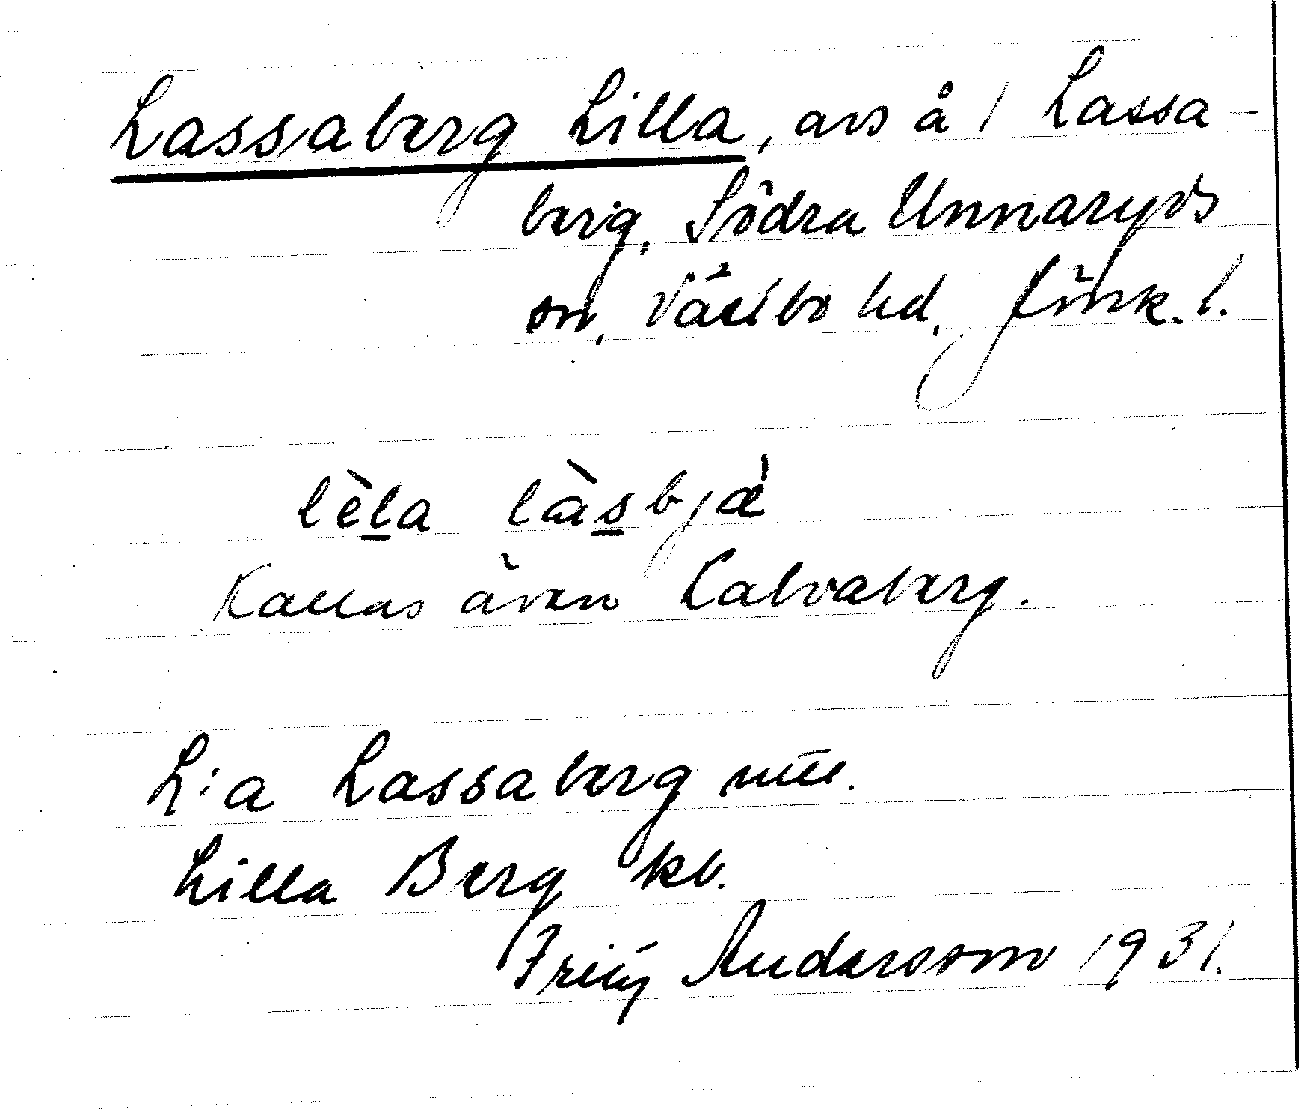 Lassaberg Lilla, avs å 1 Lassa-
berg, Södra Unnaryds
sn, Västbo hd, Jönk. l.
lèla làsbjá
Kallas även Kalvaberg.
L:a Lassaberg
Lilla Berg kb.
Andersson 1931.